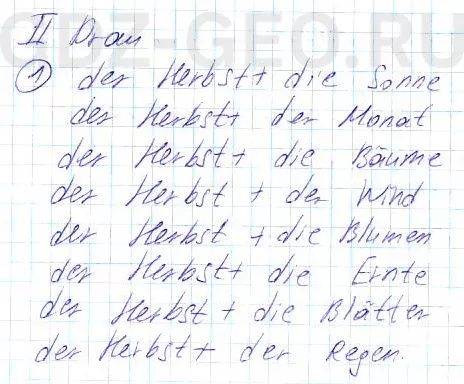 GDZ-GEO.RU
II Этап
1 der Herbst + die Sonne
der Herbst + der Monat
der Herbst + die Bäume
der Herbst + der Wind
der Herbst + die Blumen
der Herbst + die Ernte
der Herbst + die Blätter
der Herbst + der Regen.